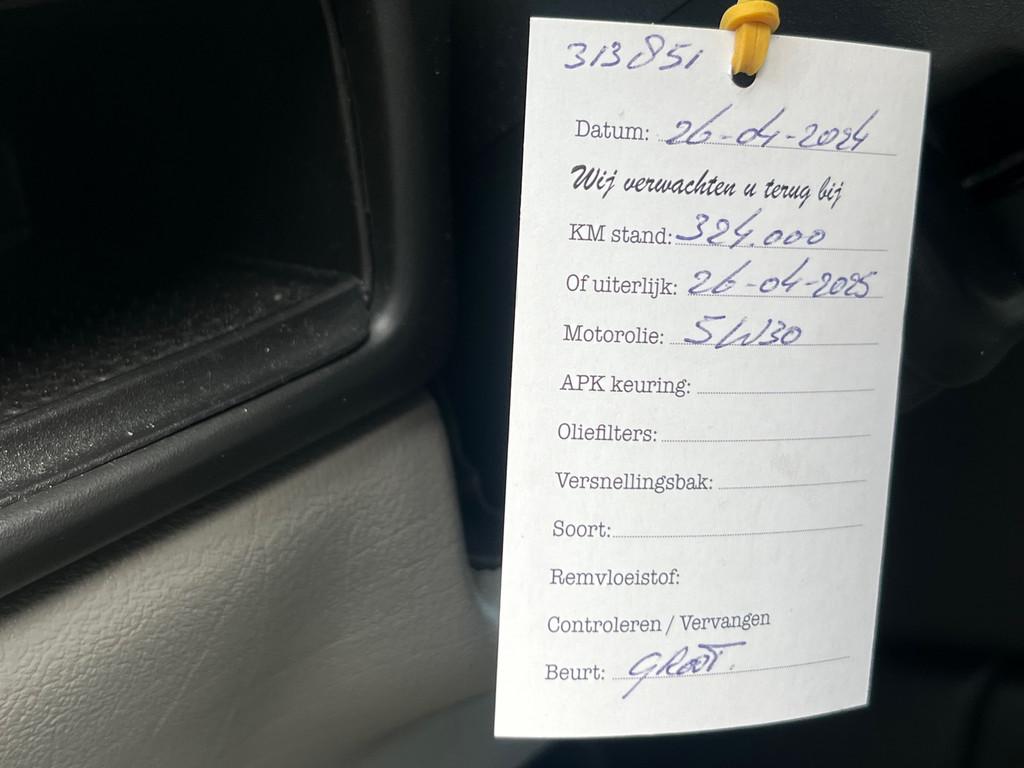 313851
Datum: 26-04-2024
Wij verwachten u terug bij
KM stand: 324.000
Of uiterlijk: 26-04-2025
Motorolie: 5W30
APK keuring:
Oliefilters:
Versnellingsbak:
Soort:
Remvloeistof:
Controleren / Vervangen
Beurt: GROOT.